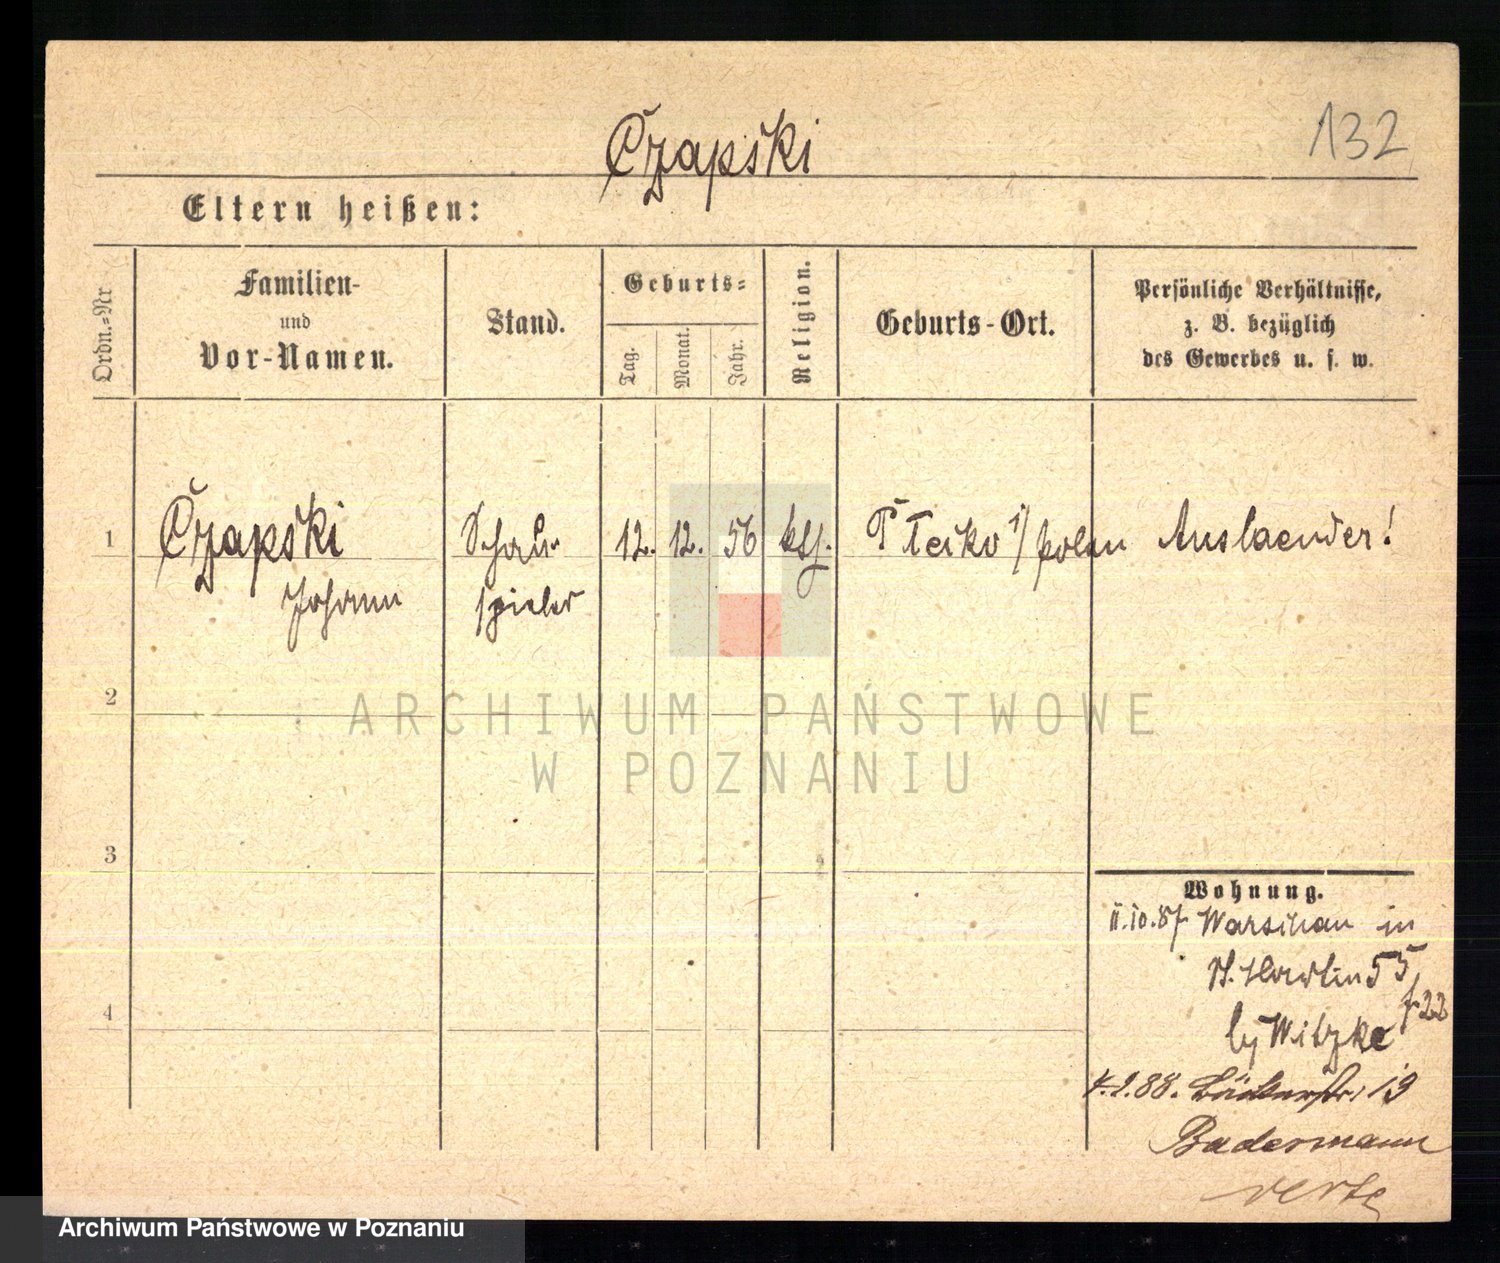 132
Czapski
Eltern heißen:
Ordn.-Nr
Familien-
und
Vor-Namen.
Stand.
Geburts-
Tag.
Monat.
Jahr.
Religion.
Geburts-Ort.
Persönliche Verhältnisse,
z. B. bezüglich
des Gewerbes u. s. w.
1
Czapski
Johann
Schau-
spieler
12.
12.
56
kth.
i/ polen
Auslaender!
2
ARCHIWUM PAŃSTWOWE
W POZNANIU
3
Wohnung.
11.10.87 Warschau in
St. Martin 55
f 22
by Witzke
4
4.2.88. Bäckerstr. 19
Badermann
verte
Archiwum Państwowe w Poznaniu